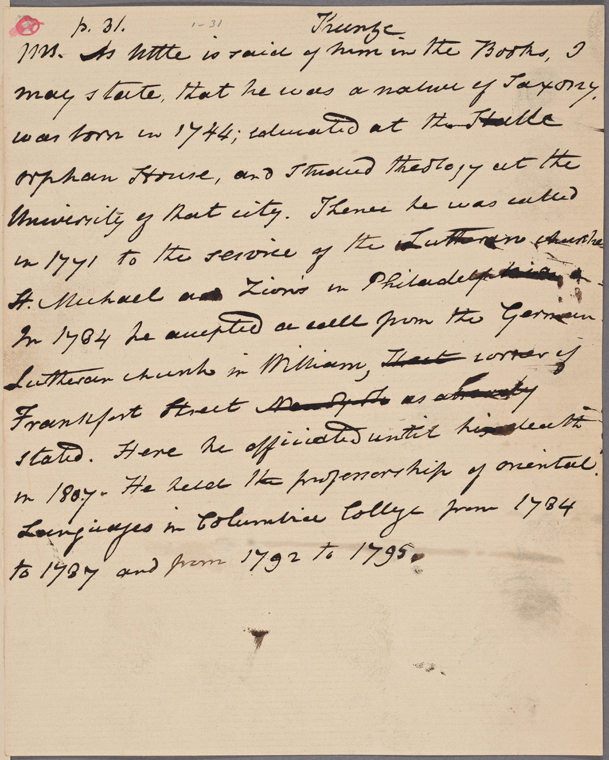 p. 31. 1-31 Kunze
As little is said of him in the Books, I
may state, that he was a native of Saxony,
was born in 1744; educated at the Halle
orphan House, and studied theology at the
University of that city. Thence he was called
in 1771 to the service of the Lutheran churches
St. Michael and Zion's in Philadelphia
In 1784 he accepted a call from the German
Lutheran church in William, corner of
Frankfort Street as already
stated. Here he officiated until his death
in 1807. He held the professorship of oriental
Languages in Columbia College from 1784
to 1787 and from 1792 to 1795.